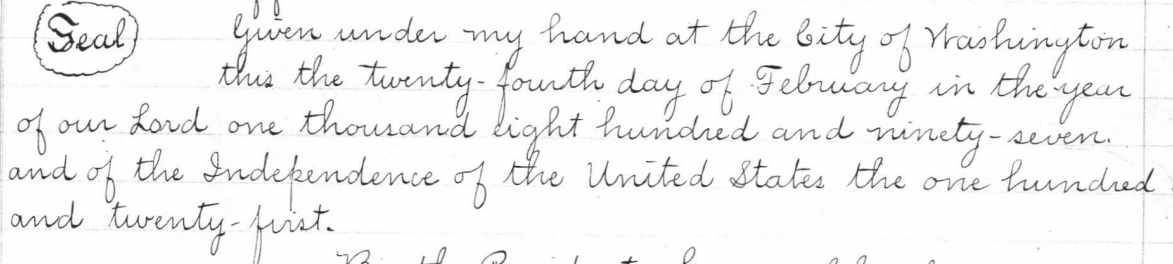 Seal Given under my hand at the City of Washington
this the twenty-fourth day of February in the year
of our Lord one thousand eight hundred and ninety-seven.
and of the Independence of the United States the one hundred
and twenty-first.
By the President